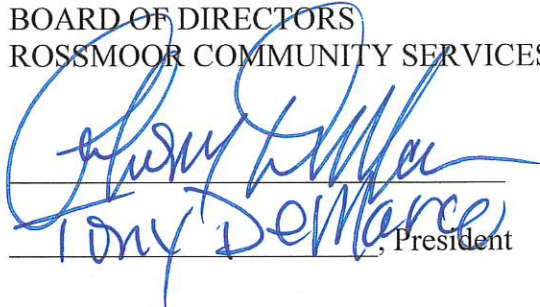 BOARD OF DIRECTORS
ROSSMOOR COMMUNITY SERVICES
Tony DeMarco, President